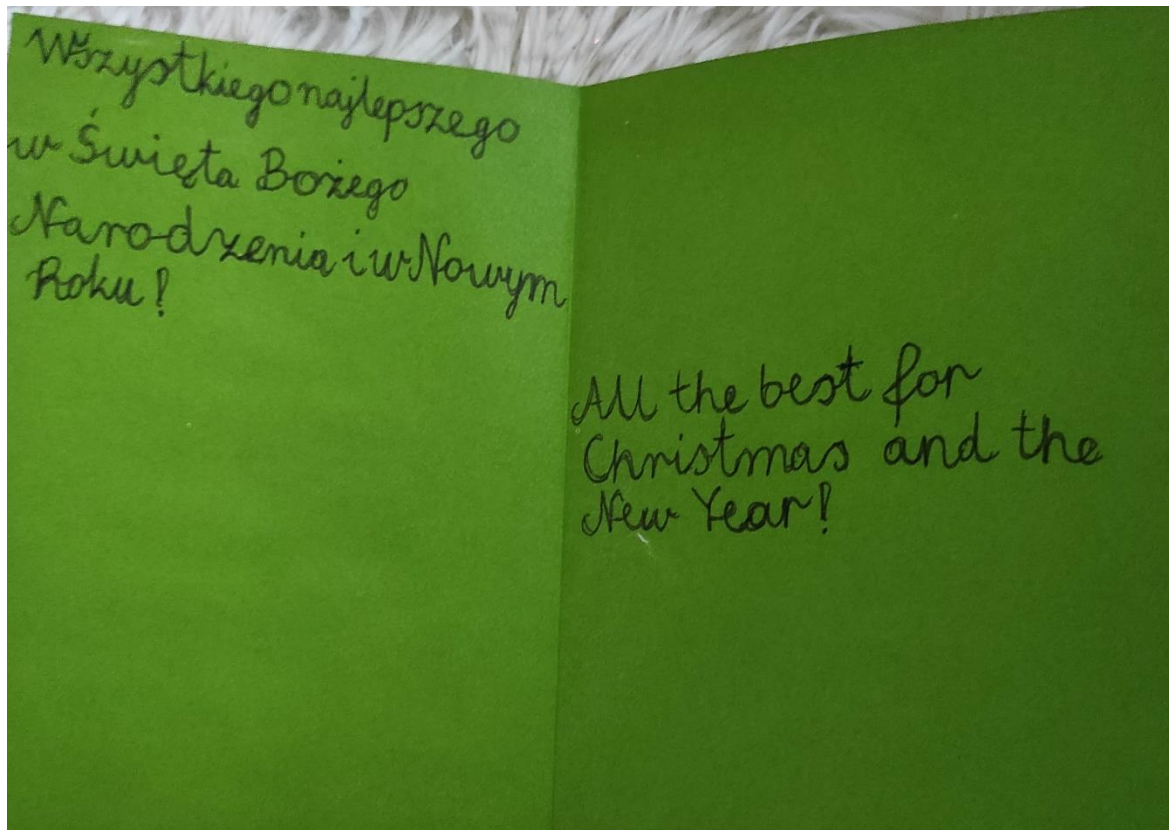 Wszystkiego najlepszego
w Święta Bożego
Narodzenia i w Nowym
Roku!
All the best for
Christmas and the
New Year!